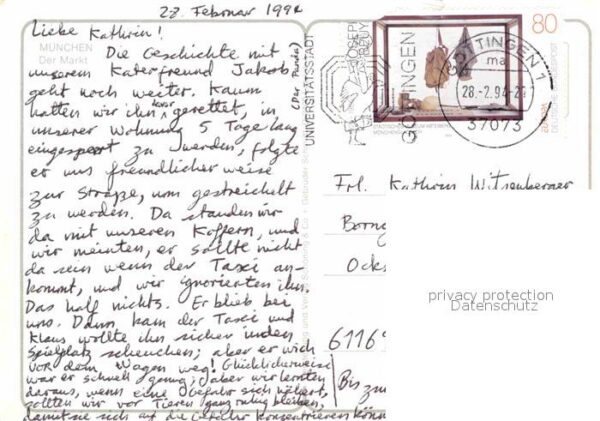 28. Februar 1994
Liebe Kathrin!
MÜNCHEN
Der Markt
Die Geschichte mit
unserem Katerfreund Jakob
geht noch weiter. Kaum
hatten wir ihn davor gerettet, in
unserer Wohnung 5 Tage lang
eingesperrt zu werden, folgte
er uns freundlicher weise
zur Straße, um gestreichelt
zu werden. Da standen wir
da mit unseren Koffern, und
wir meinten, er sollte nicht
da sein wenn der Taxi an-
kommt, und wir ignorierten ihn.
Das half nichts. Er blieb bei
uns. Dann kam der Taxi und
Klaus wollte ihn sicher in den
Spielplatz scheuchen; aber er wich
vor dem Wagen weg! Glücklicherweise
war er schnell genug; aber wir lernten
daraus, wenn eine Gefahr sich nähert,
sollten wir vor Tieren ganz ruhig bleiben,
damit sie sich auf die Gefahr konzentrieren könn
Bis zum
UNIVERSITÄTSSTADT
GÖTTINGEN
GÖTTINGEN 1
ma
28.-2.94-2
37073
80
DEUTSCHE BUNDESPOST
Frl. Kathrin Witzenberger
Borng
Ocks
6116
privacy protection
Datenschutz